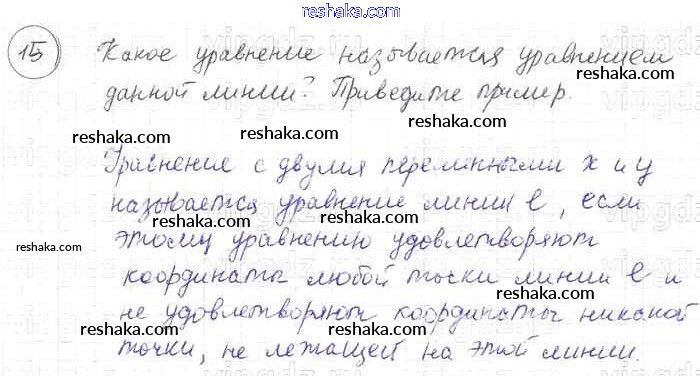 reshaka.com
15 Какое уравнение называется уравнением
данной линии? Приведите пример.
reshaka.com reshaka.com
Уравнение с двумя переменными x и y
называется уравнение линии l, если
reshaka.com reshaka.com
этому уравнению удовлетворяют
reshaka.com
координаты любой точки линии l и
reshaka.com reshaka.com
не удовлетворяют координаты никакой
reshaka.com reshaka.com
точки, не лежащей на этой линии.